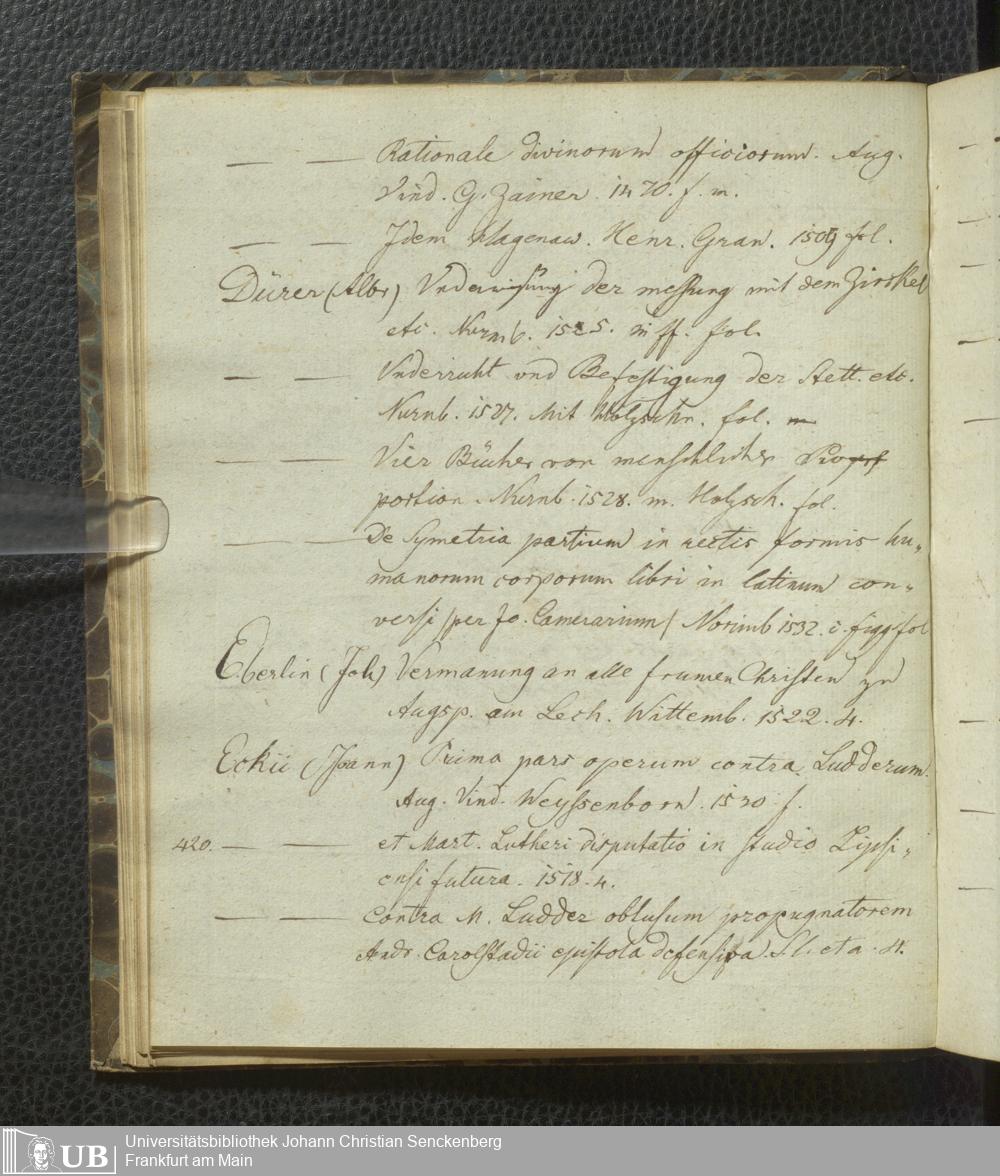 — — Rationale divinorum officiorum. Aug.
Vind. G. Zainer. 1470. f. m.
— — Idem Hagenaw. Henr. Gran. 1509 fol.
Dürer (Albr) Vnderweisung der messung mit dem Zirckel
etc. Nurnb. 1525. m ff. fol.
— — Vnderricht vnd Befestigung der Stett. etc.
Nurnb. 1527. Mit Holzschn. fol.
— — Vier Bücher von menschlicher Pro
portion. Nurnb. 1528. m. Holzsch. fol.
— — De Symetria partium in rectis formis hu„
manorum corporum libri in latinum con„
versi /per Jo. Camerarium/ Norimb 1532. c. figg. fol
Eberlin (Joh) Vermanung an alle frumen Christen zu
Augsp. am Lech. Wittemb. 1522. 4.
Eckii (Joann) Prima pars operum contra Ludderum.
Aug. Vind. Weyssenborn. 1530. f.
420. — — et Mart. Lutheri disputatio in studio Lipsi„
ensi futura. 1518. 4.
— — Contra M. Ludder obtusum propugnatorem
Andr. Carolstadii epistola defensiva. S. l. et a. 4.
UB Universitätsbibliothek Johann Christian Senckenberg
Frankfurt am Main